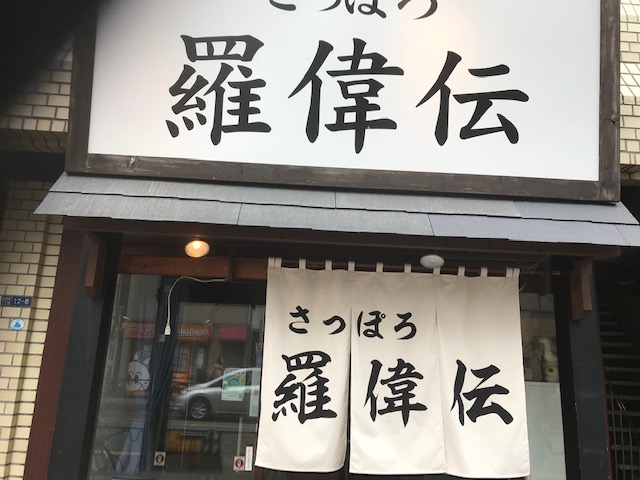 さっぽろ
羅偉伝
さっぽろ
羅偉伝
12-8